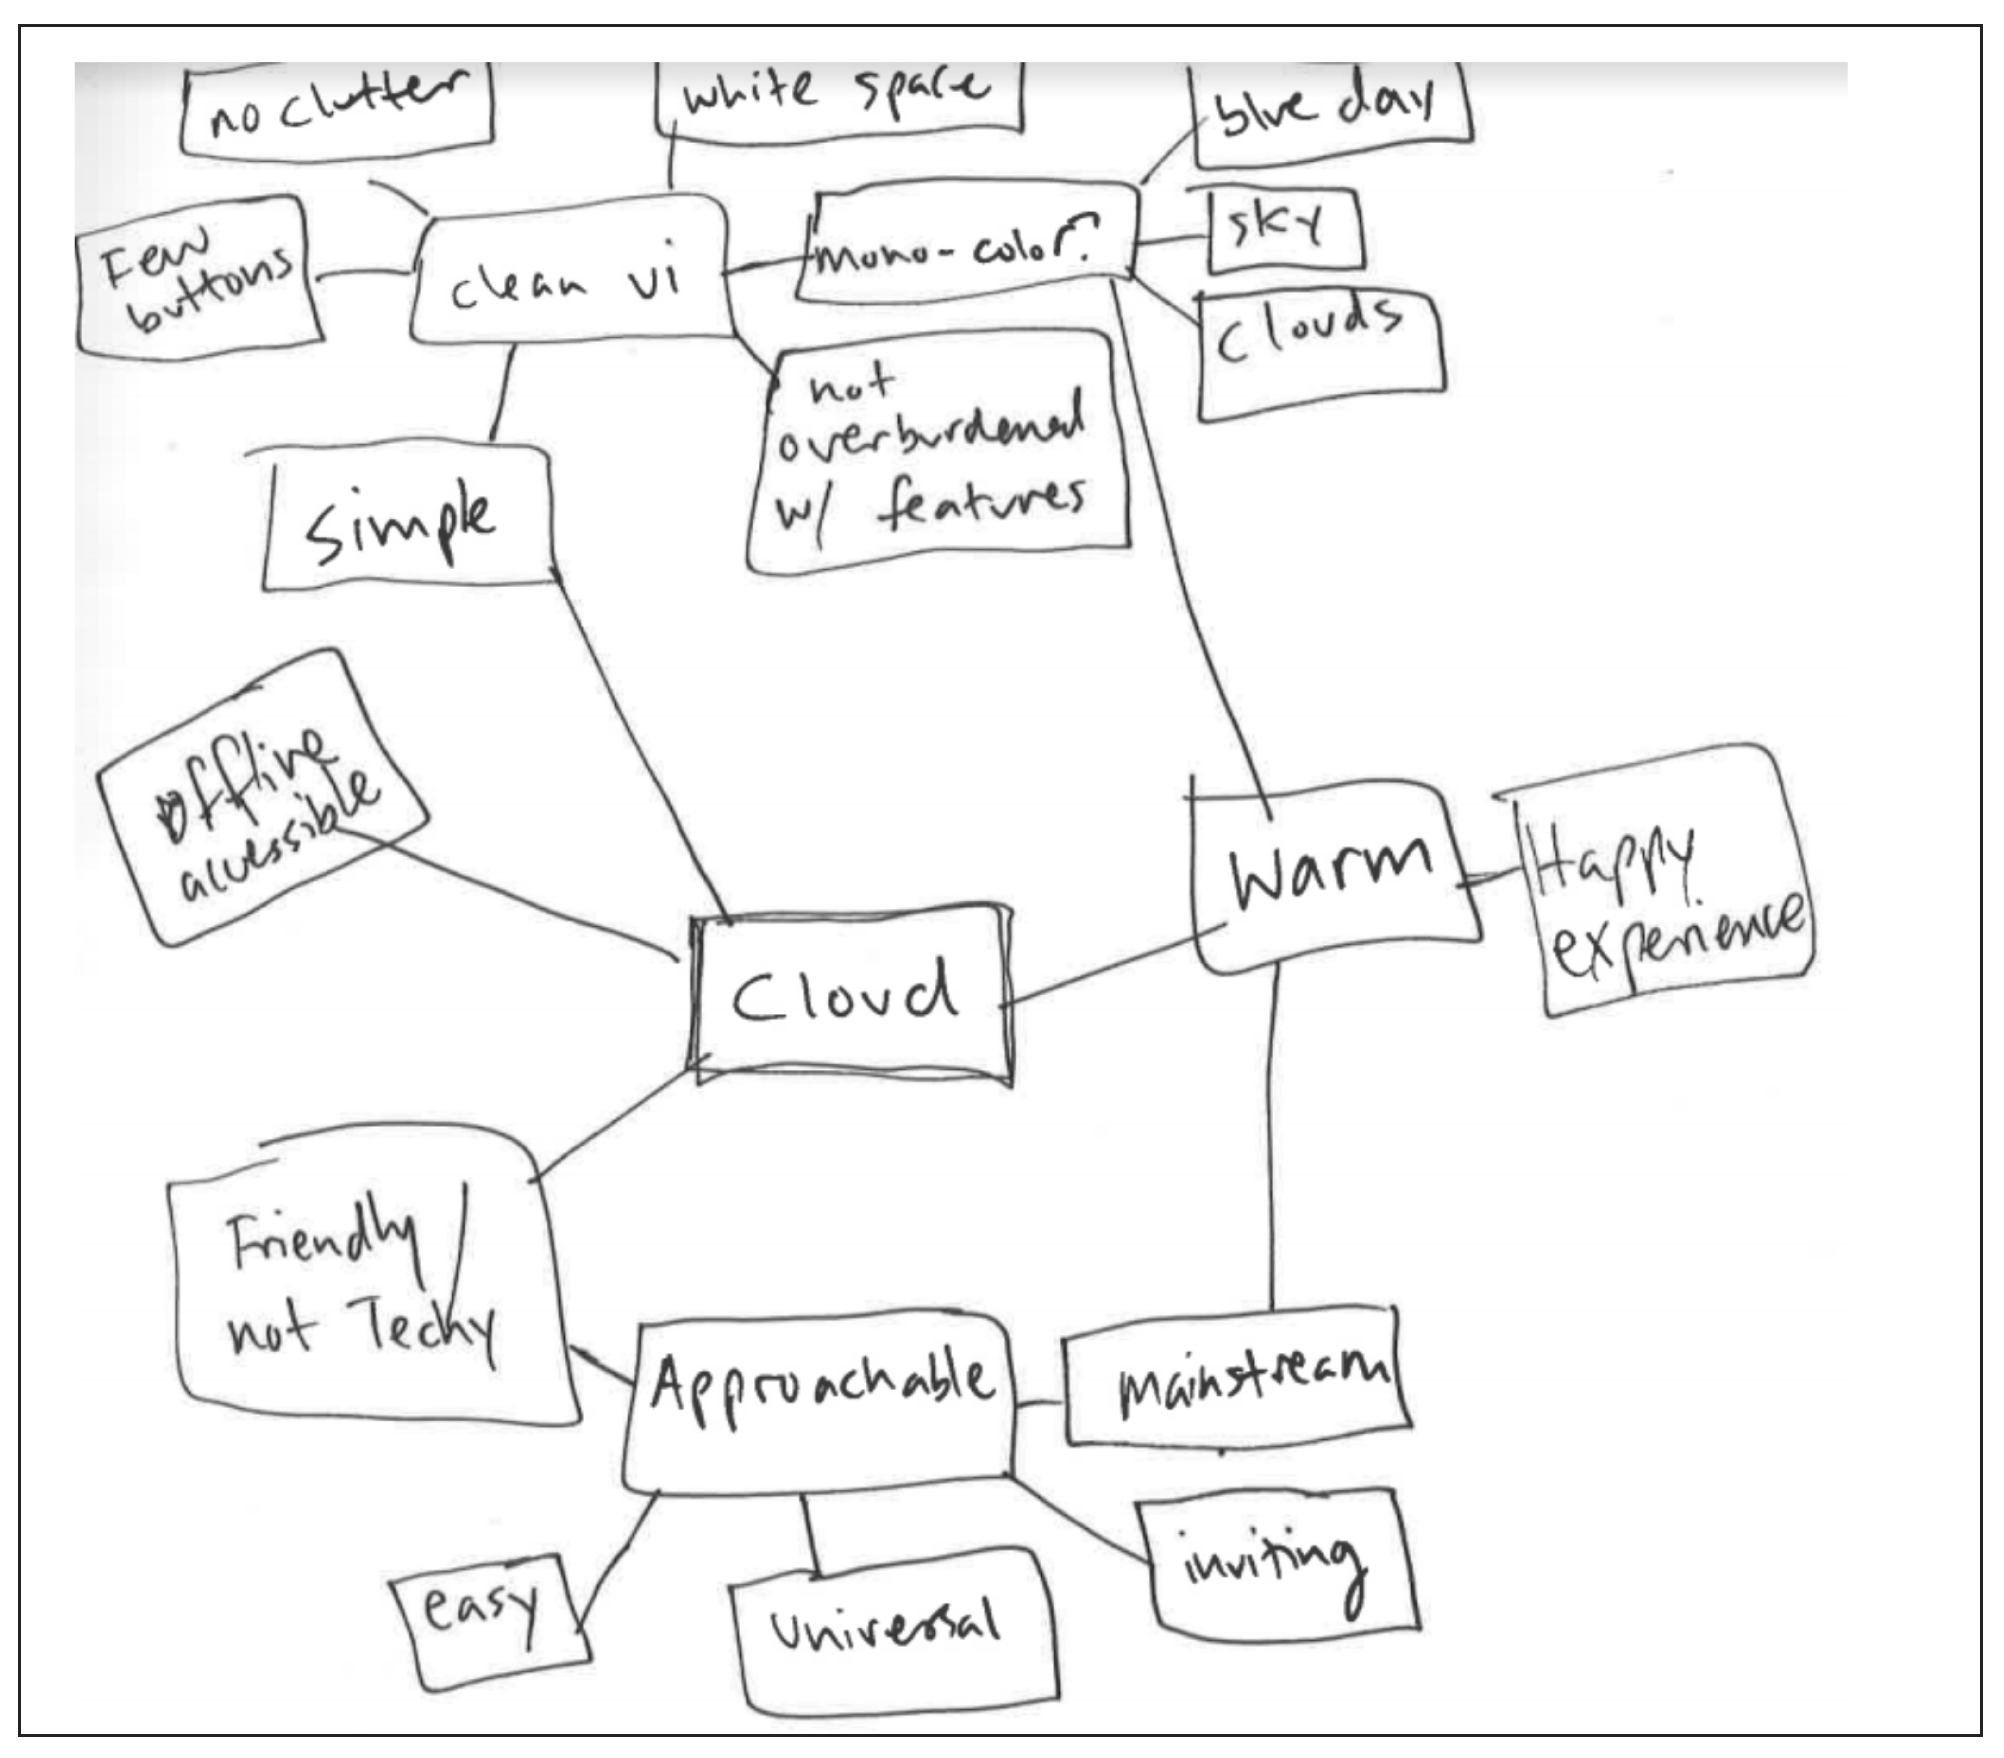 no clutter
white space
blue day
Few
buttons
clean ui
mono-color?
sky
clouds
not
overburdened
w/ features
simple
offline
accessible
Warm
Happy
experience
Cloud
Friendly
not Techy
Approachable
mainstream
easy
universal
inviting